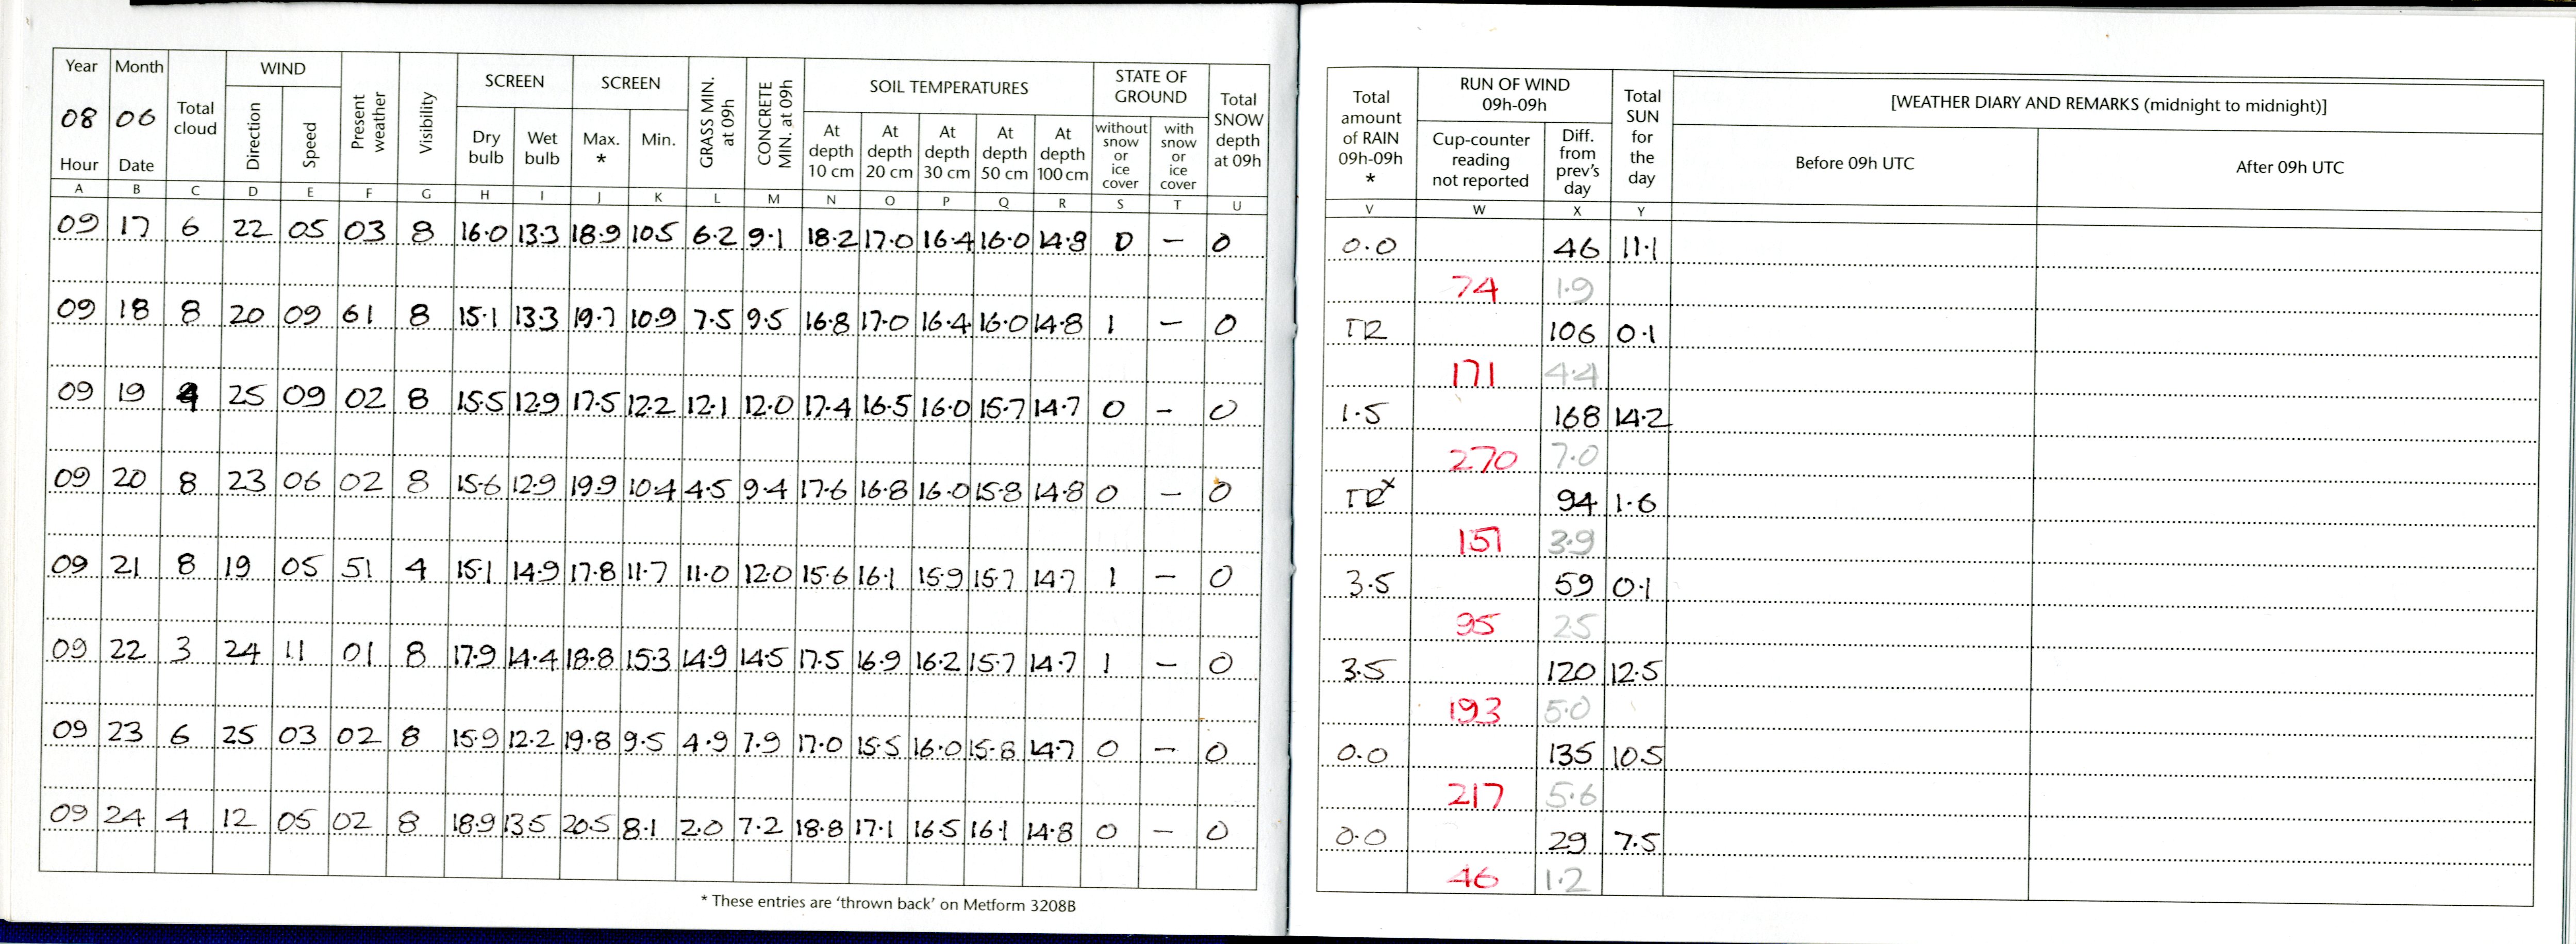 Year Month Total cloud WIND Present weather Visibility SCREEN SCREEN GRASS MIN. at 09h CONCRETE MIN. at 09h SOIL TEMPERATURES STATE OF GROUND Total SNOW depth at 09h Total amount of RAIN 09h-09h * RUN OF WIND 09h-09h Total SUN for the day [WEATHER DIARY AND REMARKS (midnight to midnight)]
08 06 Direction Speed Dry bulb Wet bulb Max. * Min. At depth 10 cm At depth 20 cm At depth 30 cm At depth 50 cm At depth 100 cm without snow or ice cover with snow or ice cover Cup-counter reading not reported Diff. from prev's day Before 09h UTC After 09h UTC
Hour Date
A B C D E F G H I J K L M N O P Q R S T U V W X Y
09 17 6 22 05 03 8 16.0 13.3 18.9 10.5 6.2 9.1 18.2 17.0 16.4 16.0 14.8 0 – 0 0.0 46 11.1
74 1.9
09 18 8 20 09 61 8 15.1 13.3 19.7 10.9 7.5 9.5 16.8 17.0 16.4 16.0 14.8 1 – 0 TR 106 0.1
171 4.4
09 19 4 25 09 02 8 15.5 12.9 17.5 12.2 12.1 12.0 17.4 16.5 16.0 15.7 14.7 0 – 0 1.5 168 14.2
270 7.0
09 20 8 23 06 02 8 15.6 12.9 19.9 10.4 4.5 9.4 17.6 16.8 16.0 15.8 14.8 0 – 0 TR x 94 1.6
151 3.9
09 21 8 19 05 51 4 15.1 14.9 17.8 11.7 11.0 12.0 15.6 16.1 15.9 15.7 14.7 1 – 0 3.5 59 0.1
95 2.5
09 22 3 24 11 01 8 17.9 14.4 18.8 15.3 14.9 14.5 17.5 16.9 16.2 15.7 14.7 1 – 0 3.5 120 12.5
193 5.0
09 23 6 25 03 02 8 15.9 12.2 19.8 9.5 4.9 7.9 17.0 15.5 16.0 15.8 14.7 0 – 0 0.0 135 10.5
217 5.6
09 24 4 12 05 02 8 18.9 13.5 20.5 8.1 2.0 7.2 18.8 17.1 16.5 16.1 14.8 0 – 0 0.0 29 7.5
46 1.2
* These entries are 'thrown back' on Metform 3208B